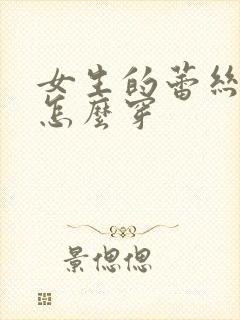 女生的蕾絲
怎麼穿
景偲偲